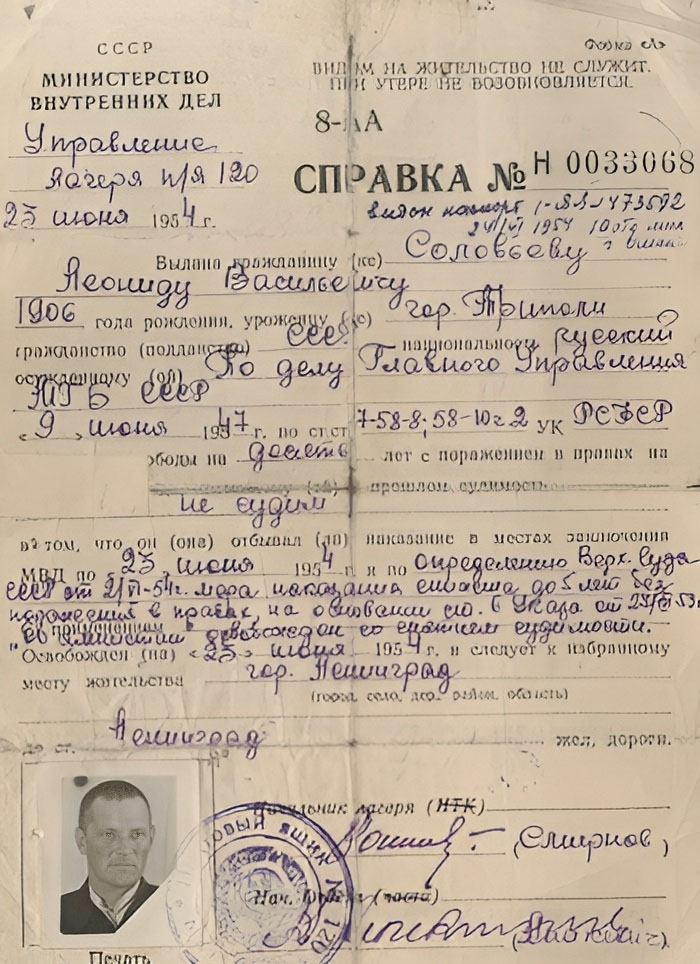 СССР
МИНИСТЕРСТВО
ВНУТРЕННИХ ДЕЛ
ВИДОМ НА ЖИТЕЛЬСТВО НЕ СЛУЖИТ.
ПРИ УТЕРЕ НЕ ВОЗОБНОВЛЯЕТСЯ.
8-АА
Управление
лагеря п/я 120
25 июня 1954 г.
СПРАВКА № Н 0033068
выдан паспорт
1954 10
Выдана гражданину (ке) Соловьеву
Леониду Васильевичу
1906 года рождения, уроженцу (ке) гор. Триполи
гражданство (подданство) СССР национальность русский
осужденному (ой) По делу Главного Управления
МГБ СССР
«9» июня 1947 г. по ст.ст. 58-8; 58-10 ч. 2 УК РСФСР
ободы на десять лет с поражением в правах на
прошлом судимость
не судим
в том, что он (она) отбывал (ла) наказание в местах заключения
МВД по 25 июня 1954 г. и по Определению Верх. Суда
СССР от 2/VI-54 г. мера наказания снижена до 5 лет без
поражения в правах на основании ст. 6 Указа от
"Об амнистии" освобожден со снятием судимости.
Освобожден (на) «25» июня 1954 г. и следует к избранному
месту жительства гор. Ленинград
(город, село, дер., район, область)
до ст. Ленинград жел. дороги.
Начальник лагеря (ИТК)
(Смирнов)
Нач. (части)
ПОЧТОВЫЙ ЯЩИК № 120
Печать